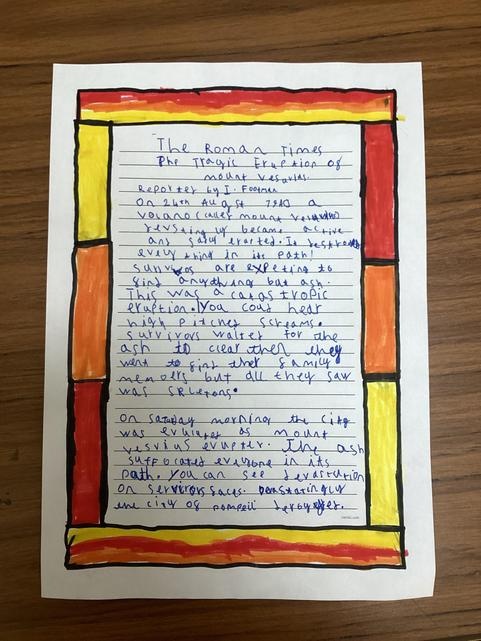 The Roman Times
The Tragic Eruption of
mount vesuvius.
Reporter by I. Foopman
On 24th August 79AD a
volano caller mount vesuvius
became active
ang sadly erupted. It destroyed
every thing in its path!
survivros are expeting to
find anything but ash.
This was a catastropic
eruption. You coud hear
high pitched screams.
survivors waited for the
ash to clear then they
went to find thet family
members but all they saw
was skletons.
On satuday morning the city
was as mount
vesvius erupted. The ash
suffocated everyone in its
path. You can see devastation
on faces. Devastatingly
the city of pompeii